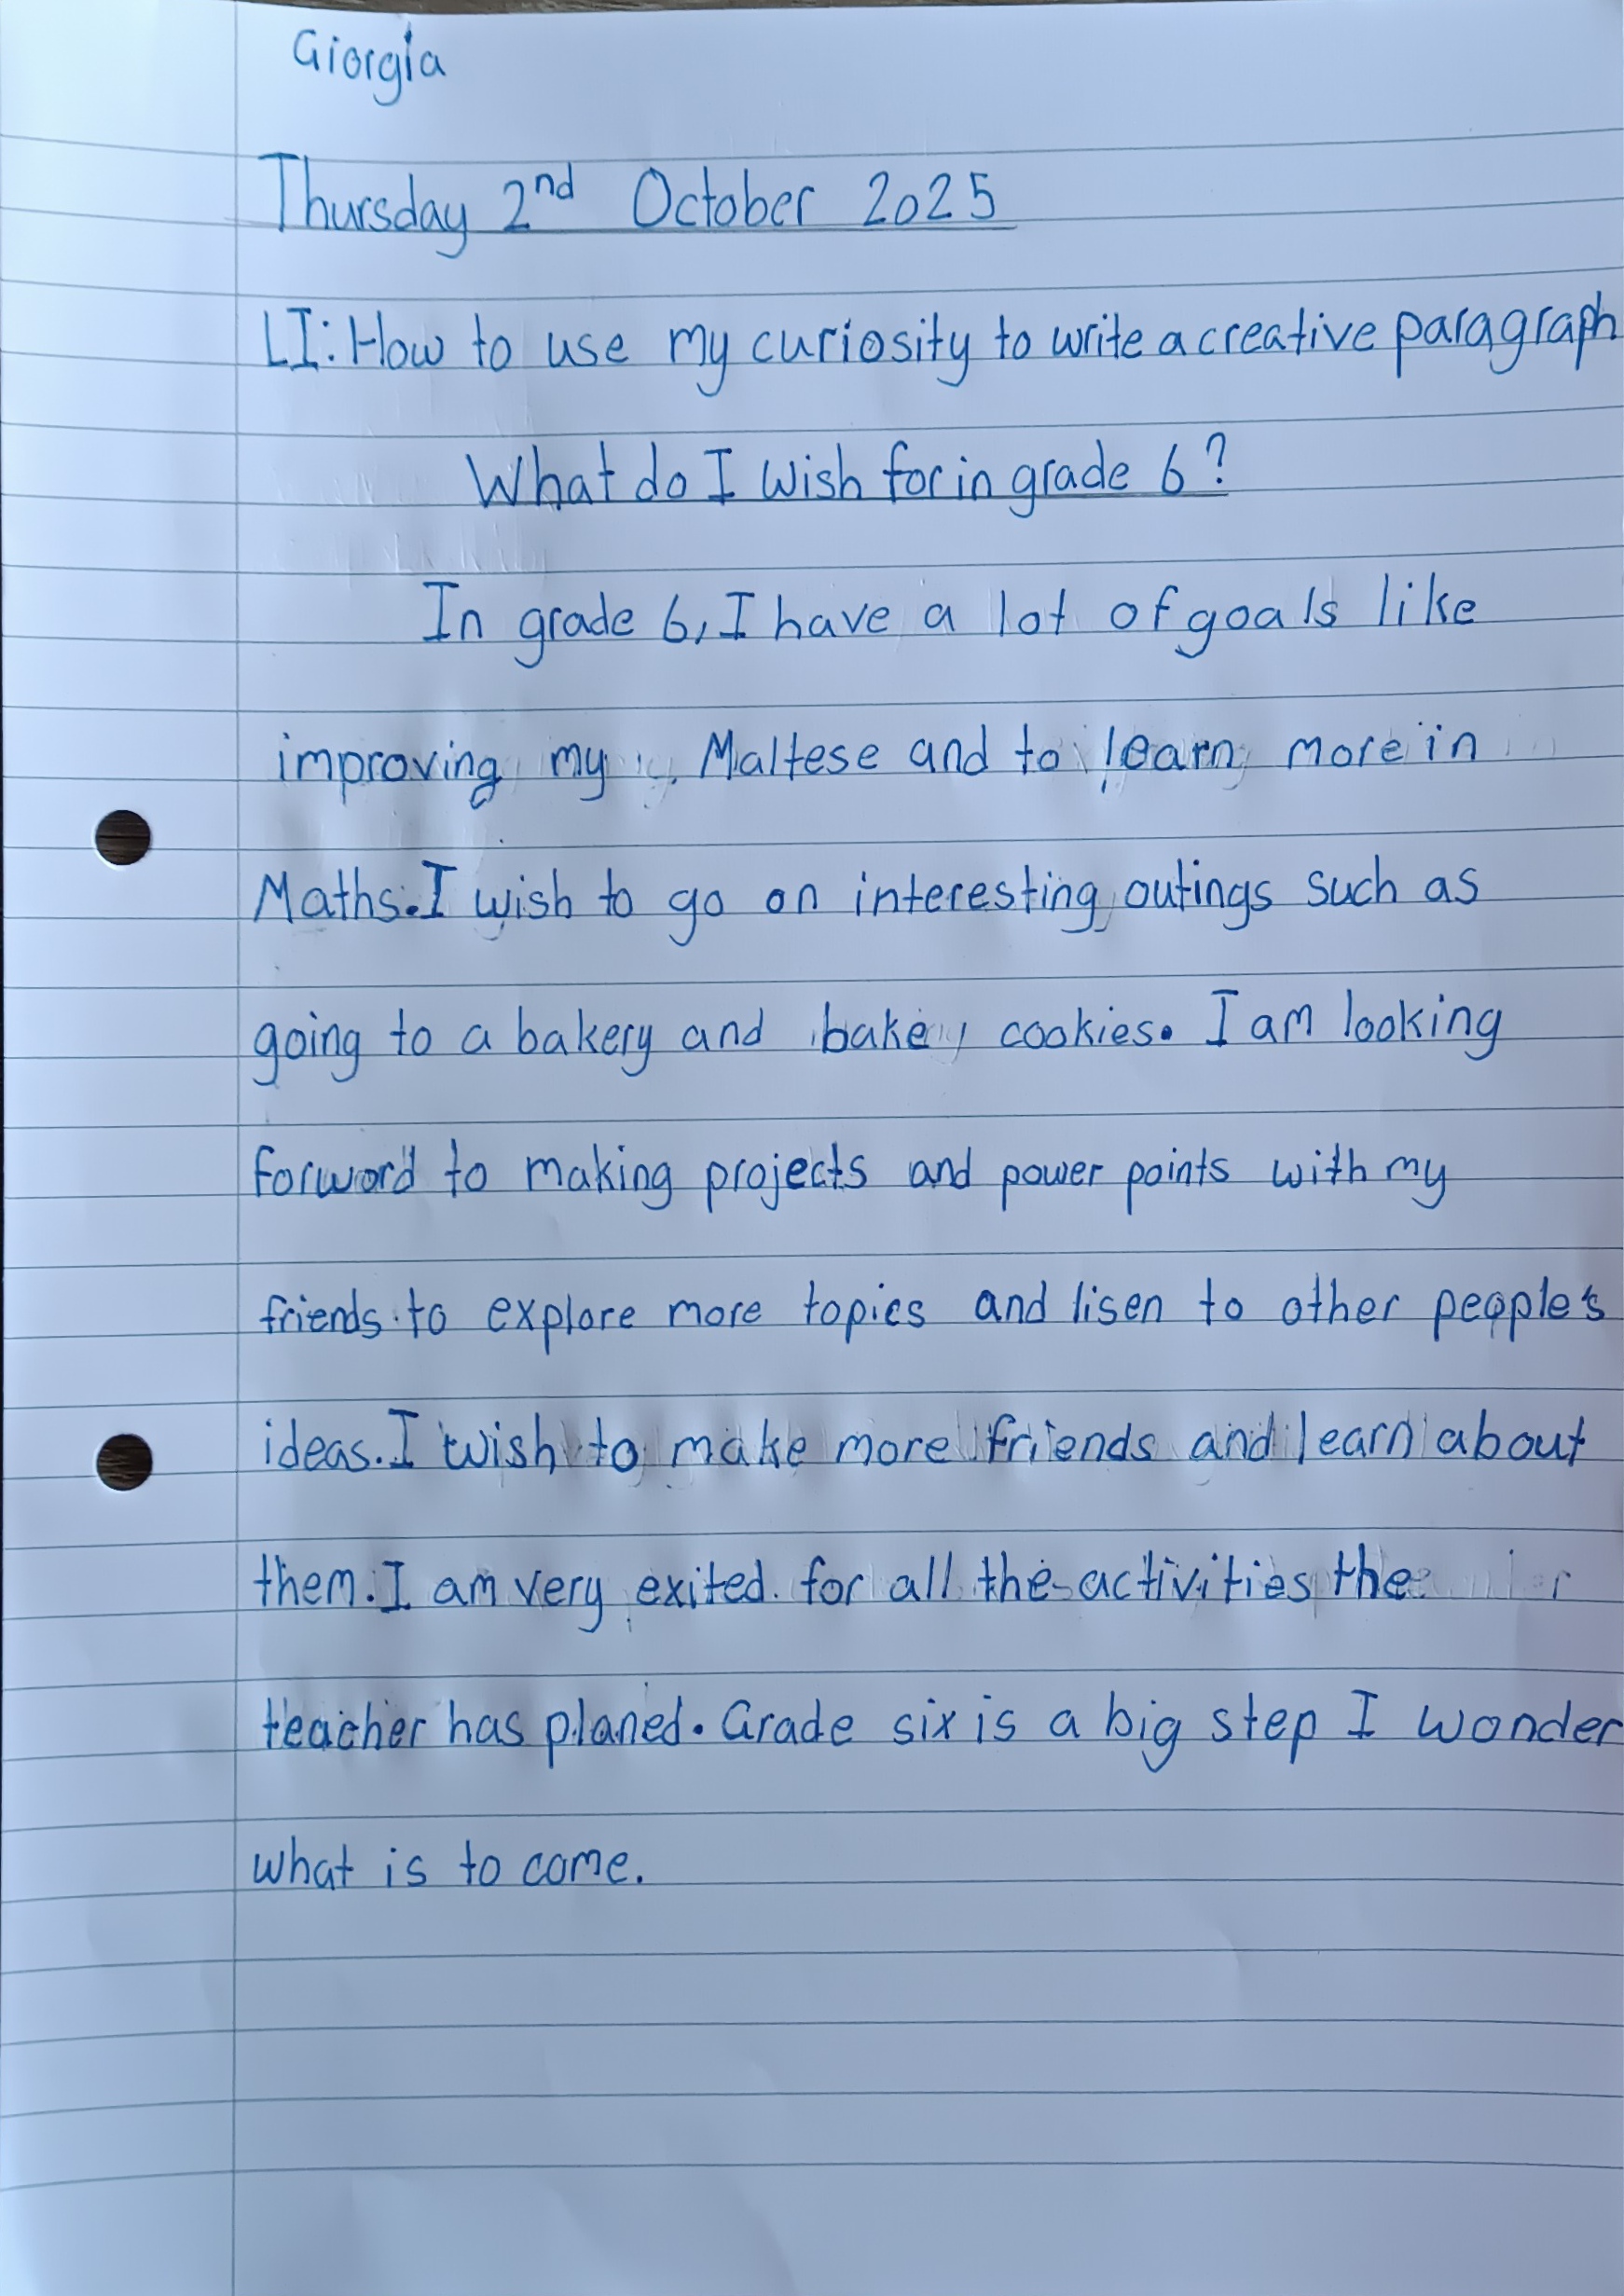 Giorgia
Thursday 2nd October 2025
LI: How to use my curiosity to write a creative paragraph
What do I wish for in grade 6?
In grade 6, I have a lot of goals like
improving my Maltese and to learn more in
Maths. I wish to go on interesting outings such as
going to a bakery and bake cookies. I am looking
forword to making projects and power points with my
friends to explore more topics and lisen to other people's
ideas. I wish to make more friends and learn about
them. I am very exited for all the activities the
teacher has planed. Grade six is a big step I wonder
what is to come.